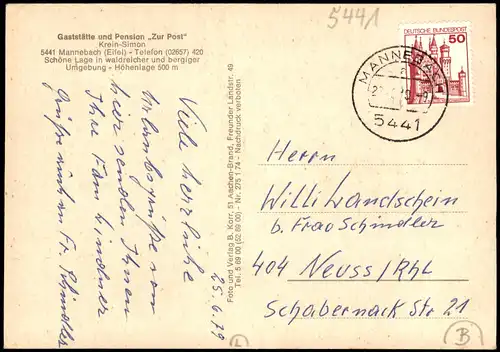 Gaststätte und Pension „Zur Post"
Krein-Simon
5441 Mannebach (Eifel) - Telefon (02657) 420
Schöne Lage in waldreicher und bergiger
Umgebung - Höhenlage 500 m
5441
DEUTSCHE BUNDESPOST
50
MANNEBACH
5441
25.6.79
Viele herzliche
Urlaubsgrüße von
hier senden Ihnen
Ihre Fam. Lindner
Grüße auch an Fr. Schindler
Foto und Verlag B. Korr, 51 Aachen-Brand, Freunder Landstr. 49
Tel. 5 69 00 (52 69 00) - Nr. 275 1 74 - Nachdruck verboten
Herrn
Willi Landschein
b. Frao Schindler
404 Neuss/Rhl
Schabernack Str 21
L
B